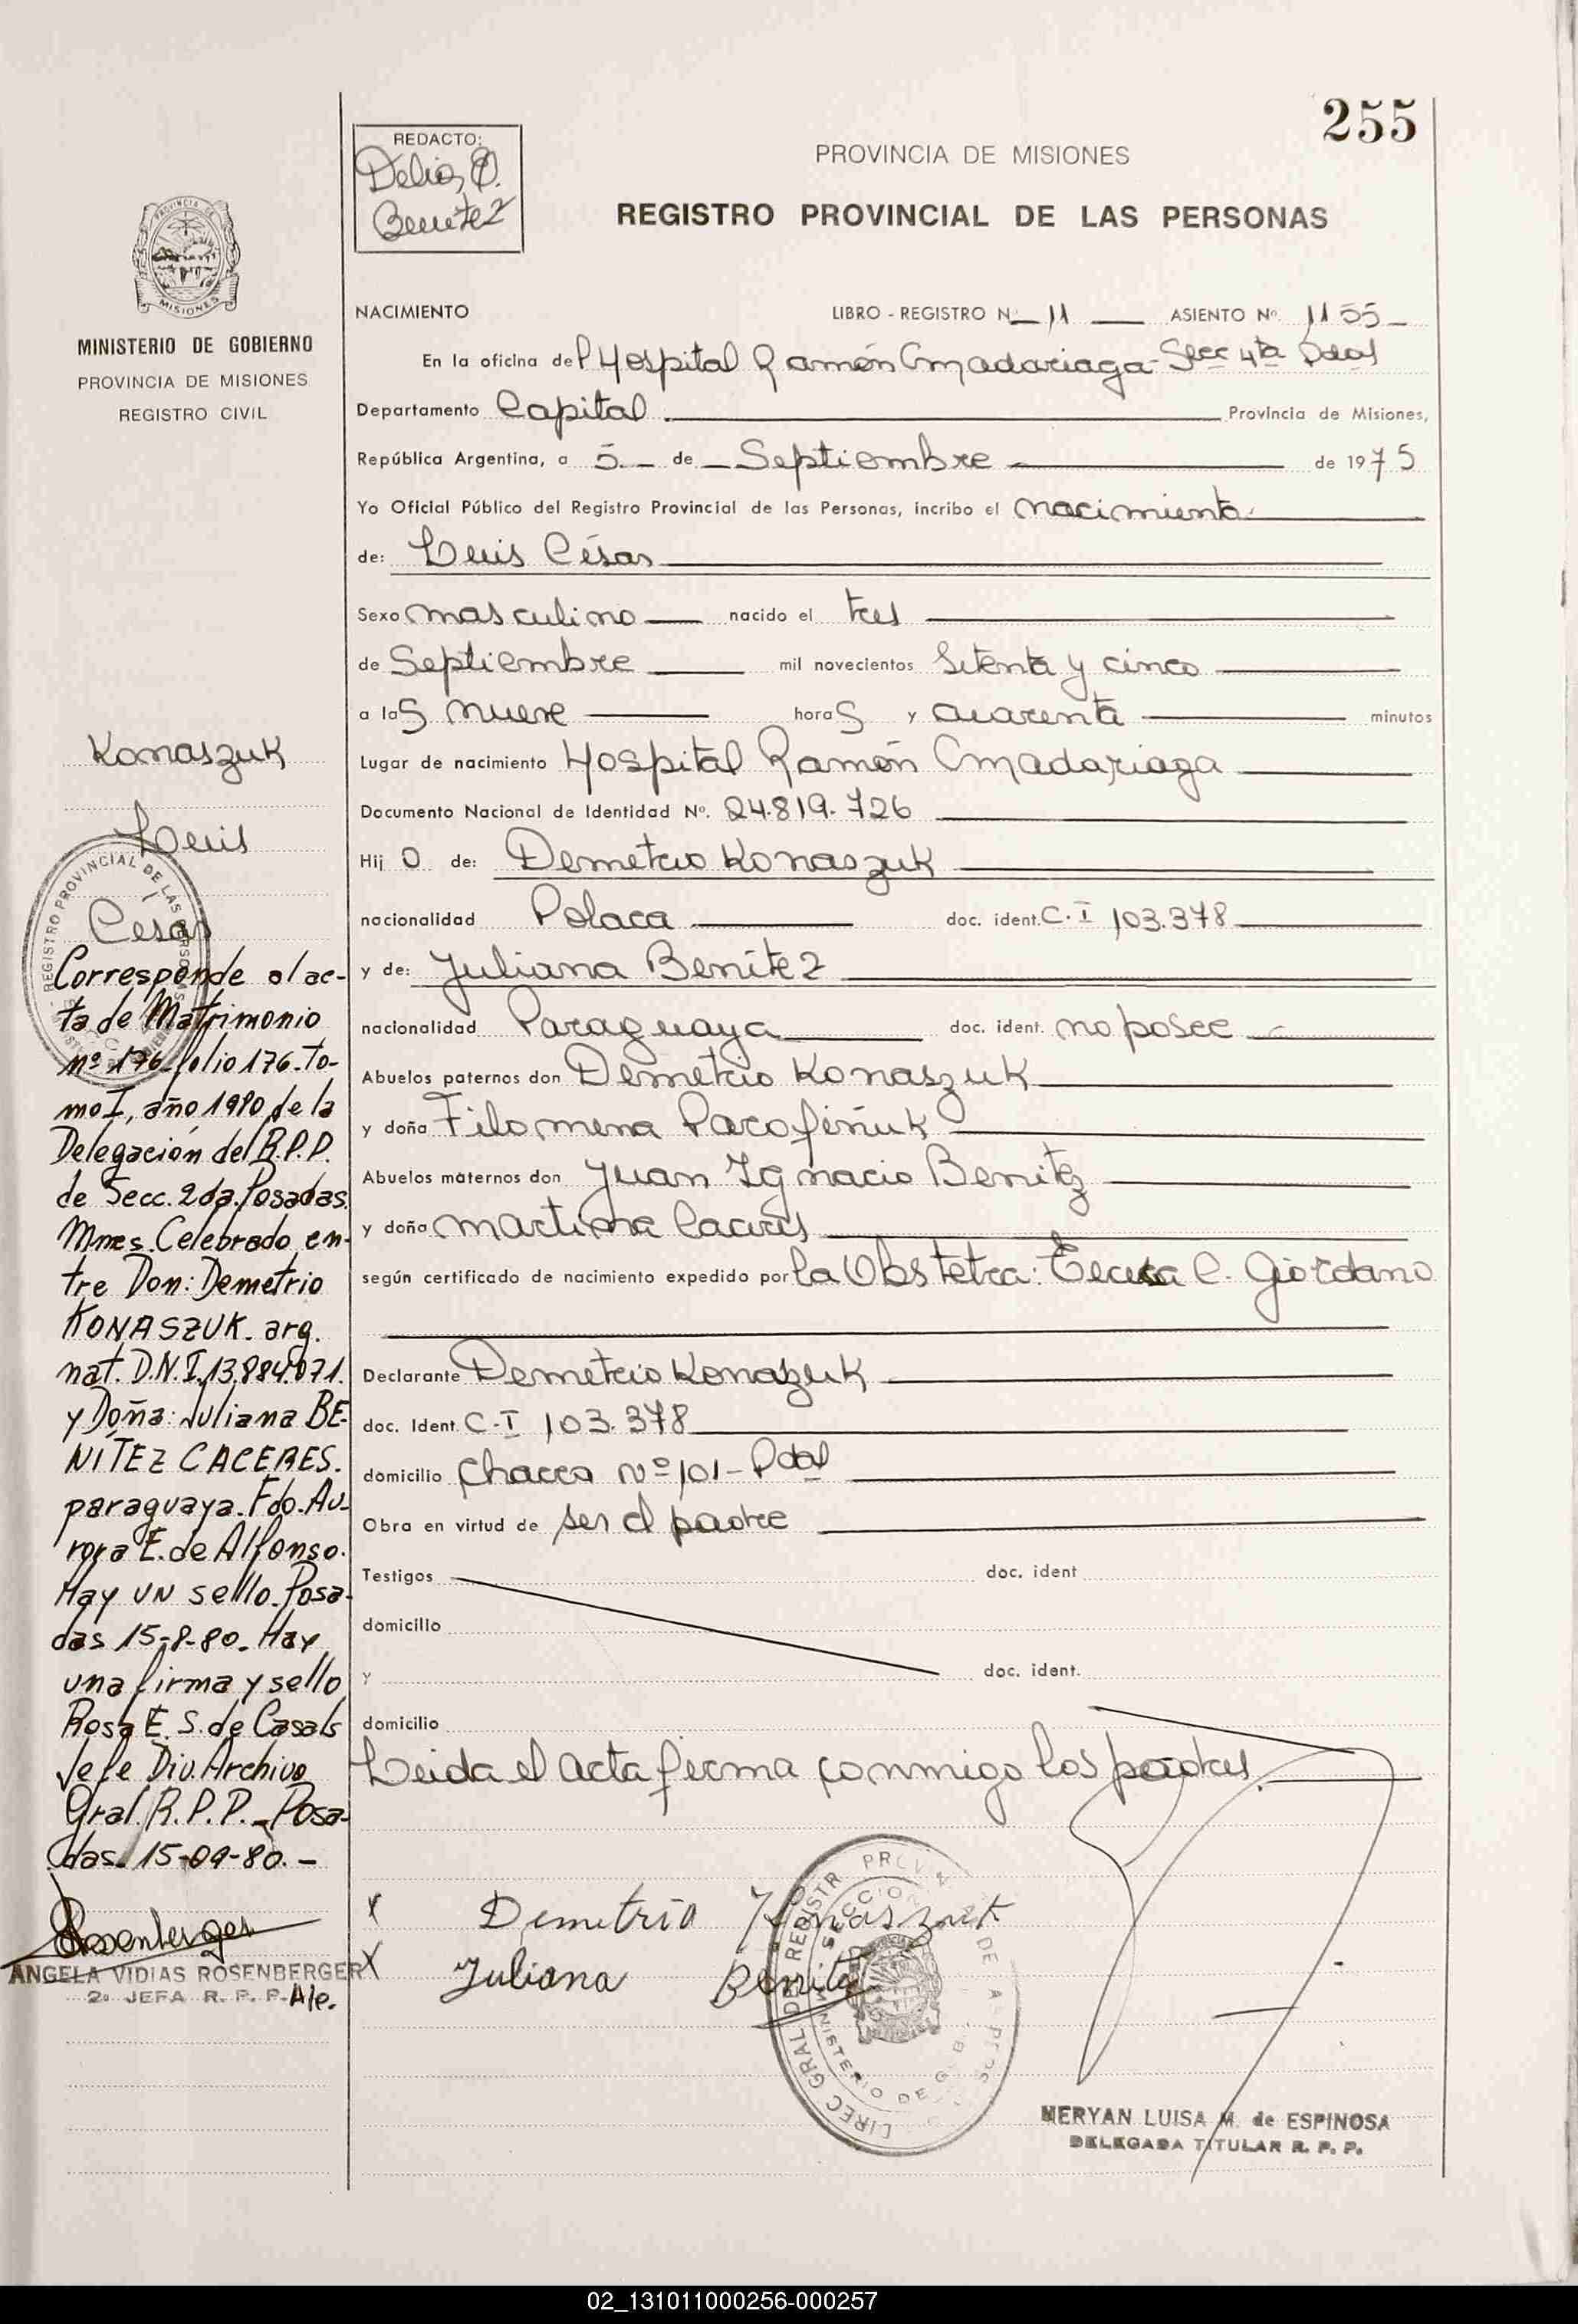 255
REDACTO:
Delia O.
Benitez
PROVINCIA DE MISIONES
REGISTRO PROVINCIAL DE LAS PERSONAS
PROVINCIA DE
MISIONES
MINISTERIO DE GOBIERNO
PROVINCIA DE MISIONES
REGISTRO CIVIL
NACIMIENTO LIBRO - REGISTRO Nº 11 ASIENTO Nº 1155
En la oficina del Hospital Ramón Madariaga - Secc 4ta Pdas
Departamento Capital Provincia de Misiones,
República Argentina, a 5 de Septiembre de 1975
Yo Oficial Público del Registro Provincial de las Personas, incribo el nacimiento
de: Luis César
Sexo masculino nacido el tres
de Septiembre mil novecientos setenta y cinco
a las nueve horas y cuarenta minutos
Lugar de nacimiento Hospital Ramón Madariaga
Documento Nacional de Identidad Nº. 24.819.726
Hijo de: Demetrio Konaszuk
nacionalidad Polaca doc. ident. C.I 103.378
y de: Juliana Benitez
nacionalidad Paraguaya doc. ident. no posee
Abuelos paternos don Demetrio Konaszuk
y doña Filomena
Abuelos maternos don Juan Ignacio Benitez
y doña Martina
según certificado de nacimiento expedido por la Obstetra: Teresa C. Giordano
Declarante Demetrio Konaszuk
doc. Ident. C.I 103.378
domicilio Chacra Nº 101 - Pdas
Obra en virtud de ser el padre
Testigos doc. ident
domicilio
y doc. ident.
domicilio
Leida el acta firma conmigo los padres.
x Demetrio Konaszuk
x Juliana Benitez
MERYAN LUISA M. de ESPINOSA
DELEGADA TITULAR R. P. P.
Konaszuk
Luis
Cesar
Corresponde al ac-
ta de Matrimonio
nº 176 folio 176. To-
mo I, año 1980 de la
Delegación del R.P.P.
de Secc. 2da. Posadas
Mnes. Celebrado en-
tre Don: Demetrio
KONASZUK. arg.
nat. D.N.I. 13.884.071.
y Doña: Juliana BE-
NÍTEZ CACERES.
paraguaya. Fdo. Au-
rora E. de Alfonso.
Hay UN sello. Posa-
das 15-8-80. Hay
una firma y sello
Rosa E. S. de Casals
Jefe Div. Archivo
Gral. R.P.P. - Posa-
das. 15-09-80. -
Rosenberger
ANGELA VIDIAS ROSENBERGER
2ª JEFA R. P. P. Ale.
02_131011000256-000257